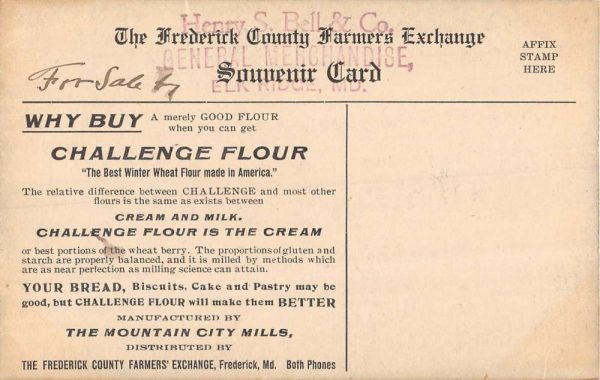 Henry S. Bell & Co.
The Frederick County Farmers Exchange
GENERAL MERCHANDISE,
For Sale by
Souvenir Card
ELK RIDGE, MD.
AFFIX
STAMP
HERE
WHY BUY A merely GOOD FLOUR
when you can get
CHALLENGE FLOUR
"The Best Winter Wheat Flour made in America."
The relative difference between CHALLENGE and most other
flours is the same as exists between
CREAM AND MILK.
CHALLENGE FLOUR IS THE CREAM
or best portions of the wheat berry. The proportions of gluten and
starch are properly balanced, and it is milled by methods which
are as near perfection as milling science can attain.
YOUR BREAD, Biscuits, Cake and Pastry may be
good, but CHALLENGE FLOUR will make them BETTER
MANUFACTURED BY
THE MOUNTAIN CITY MILLS,
DISTRIBUTED BY
THE FREDERICK COUNTY FARMERS' EXCHANGE, Frederick, Md. Both Phones